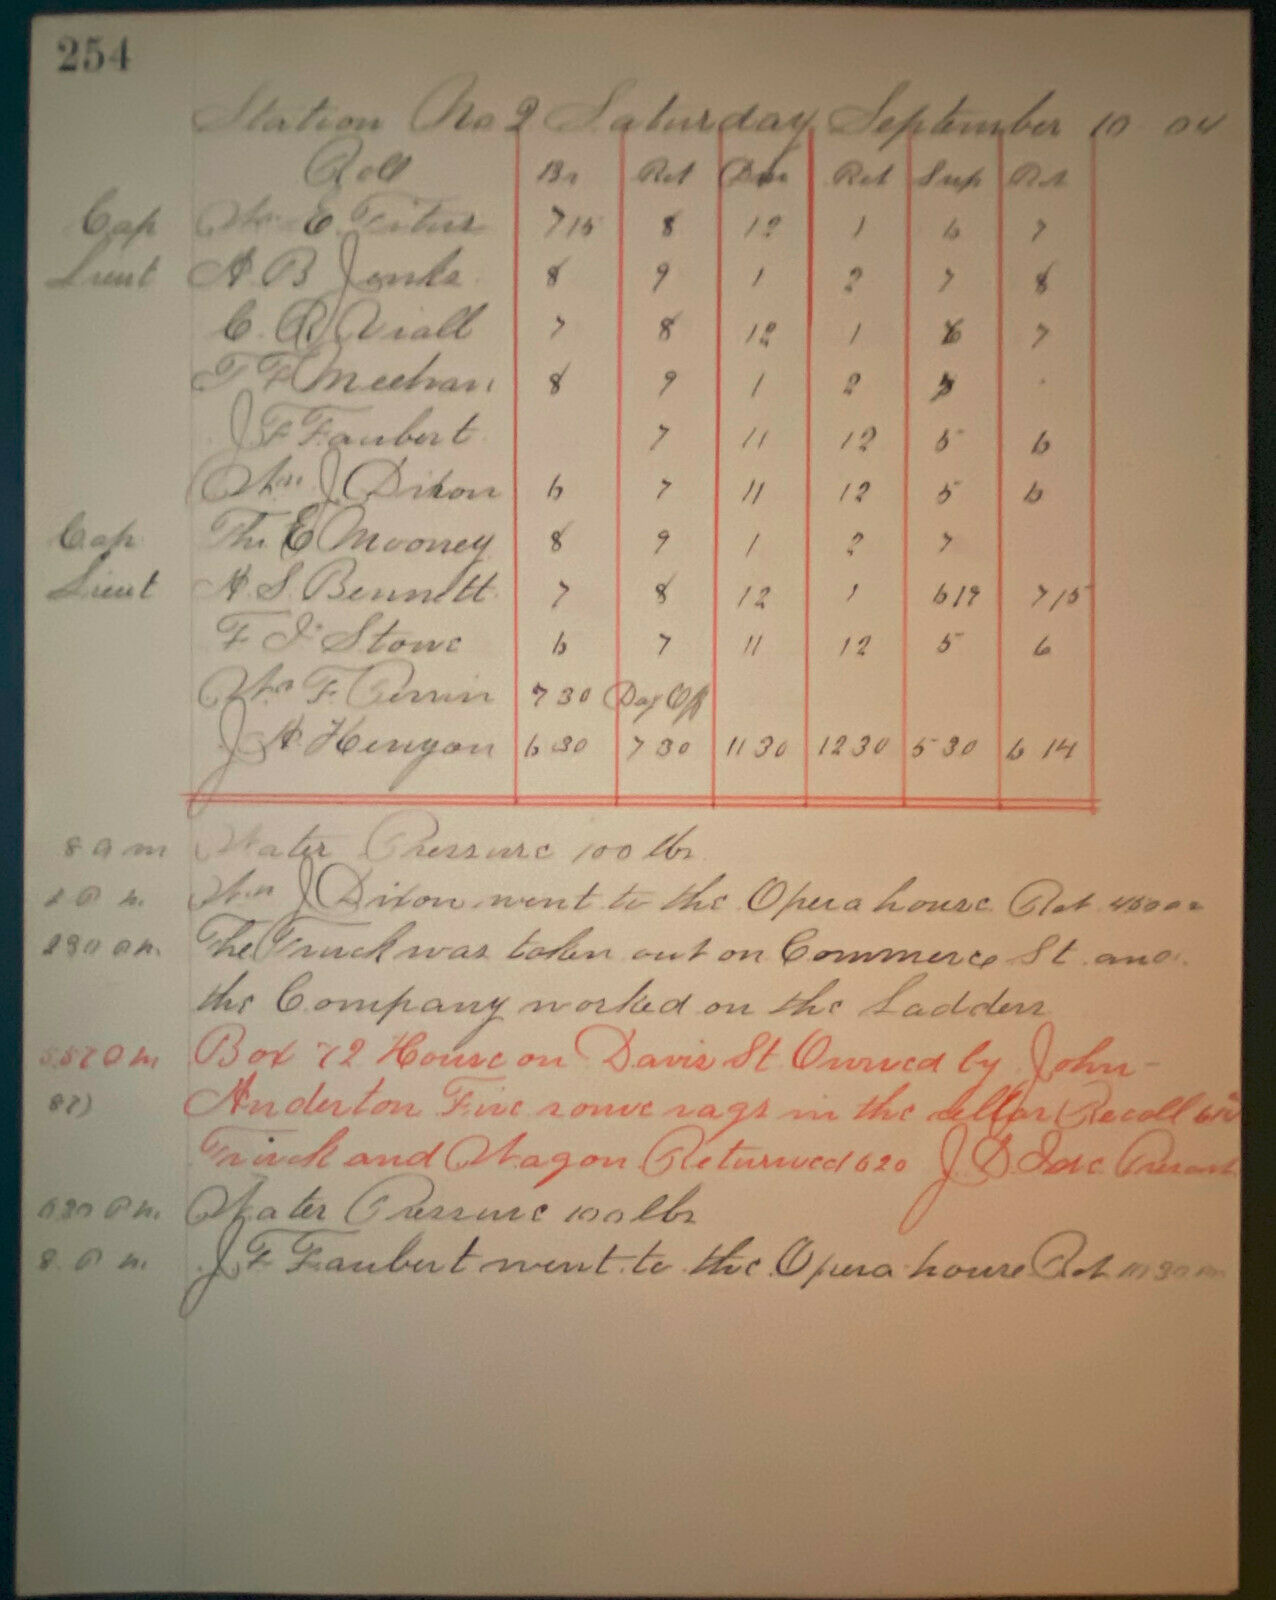 254
Station No 2 Saturday September 10 04
Roll Br Ret Din Ret Sup Ret
Cap Wm E. 7 15 8 12 1 6 7
Lieut A B Jenks 8 9 1 2 7 8
C. R Viall 7 8 12 1 6 7
T F Meehan 8 9 1 2
J F Faubert 7 11 12 5 6
Wm J Dixon 6 7 11 12 5 6
Cap Th. E Mooney 8 9 1 2 7
Lieut A. S. Bennett 7 8 12 1 6 19 7 15
F J Stone 6 7 11 12 5 6
Wm F. Perrin 7 30 Day Off
J A. Kenyon 6 30 7 30 11 30 12 30 5 30 6 14
8 a m Water Pressure 100 lbs
P m. Wm J Dixon went to the Opera house Ret
The Truck was taken out on Commerce St. and
the Company worked on the Ladders
5.57 P m Box 72 House on Davis St. Owned by John
Anderton Fire some rags in the cellar Recall
Truck and Wagon Returned 6 20 J. Present
6 30 P m. Water Pressure 100 lbs
8. P m. J F Faubert went to the Opera house Ret